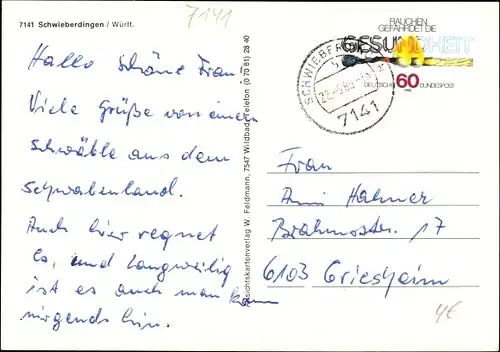 7141
7141 Schwieberdingen / Württ.
Hallo schöne Frau!
Viele Grüße von einem
Schwäble aus dem
Schwabenland.
Auch hier regnet
es, und langweilig
ist es auch man kann
nirgends hin.
Ansichtskartenverlag W. Feldmann, 7547 Wildbad, Telefon (0 70 81) 28 40
RAUCHEN
GEFÄHRDET DIE
GESUNDHEIT
DEUTSCHE 60 BUNDESPOST
SCHWIEBERDINGEN
7141
Frau
Hahner
17
6103 Griesheim
4€